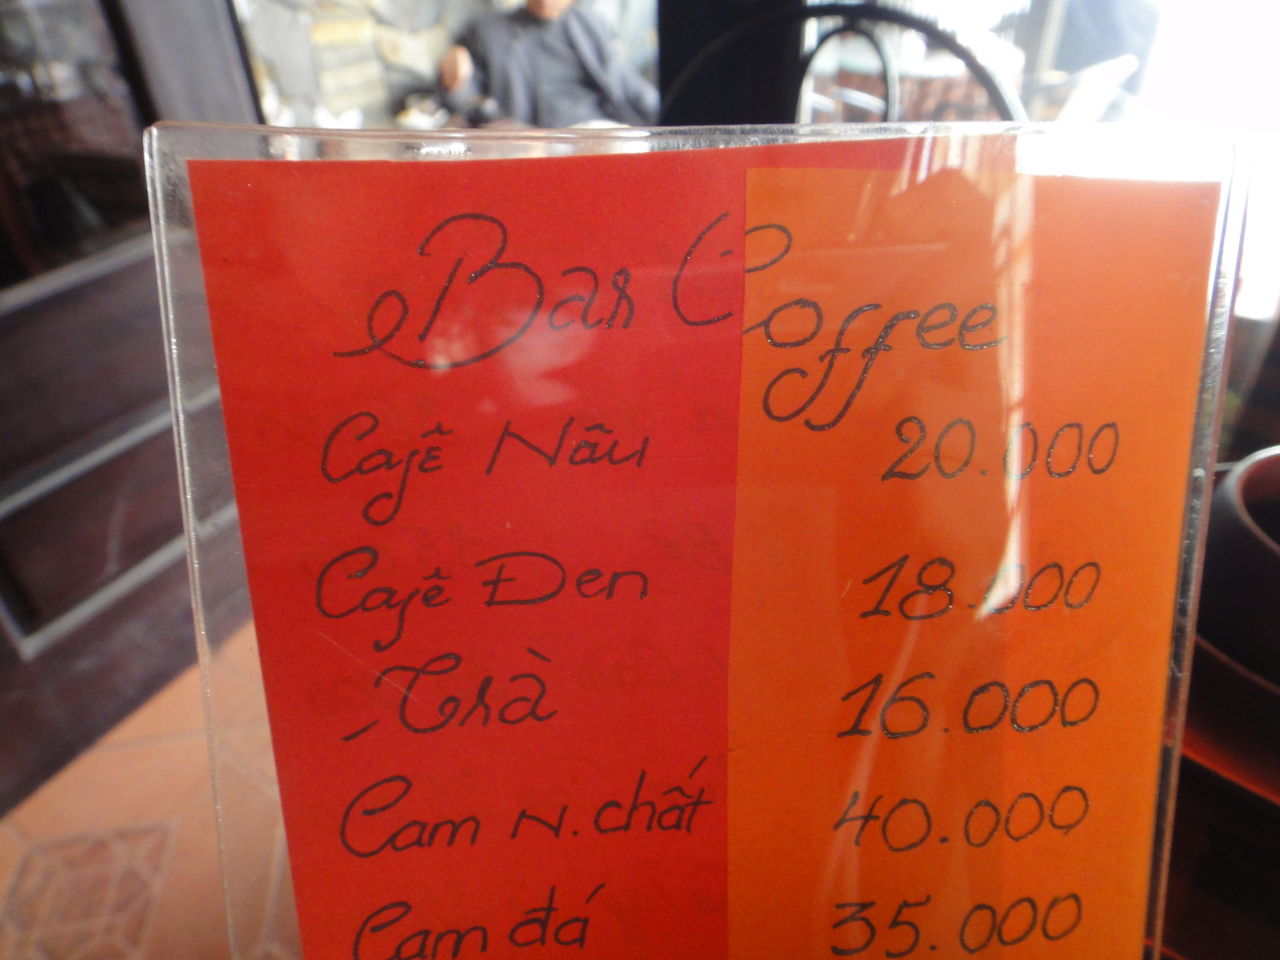 Bar Coffee
Cafê Nâu 20.000
Cafê Đen 18.000
Trà 16.000
Cam N. chất 40.000
Cam đá 35.000